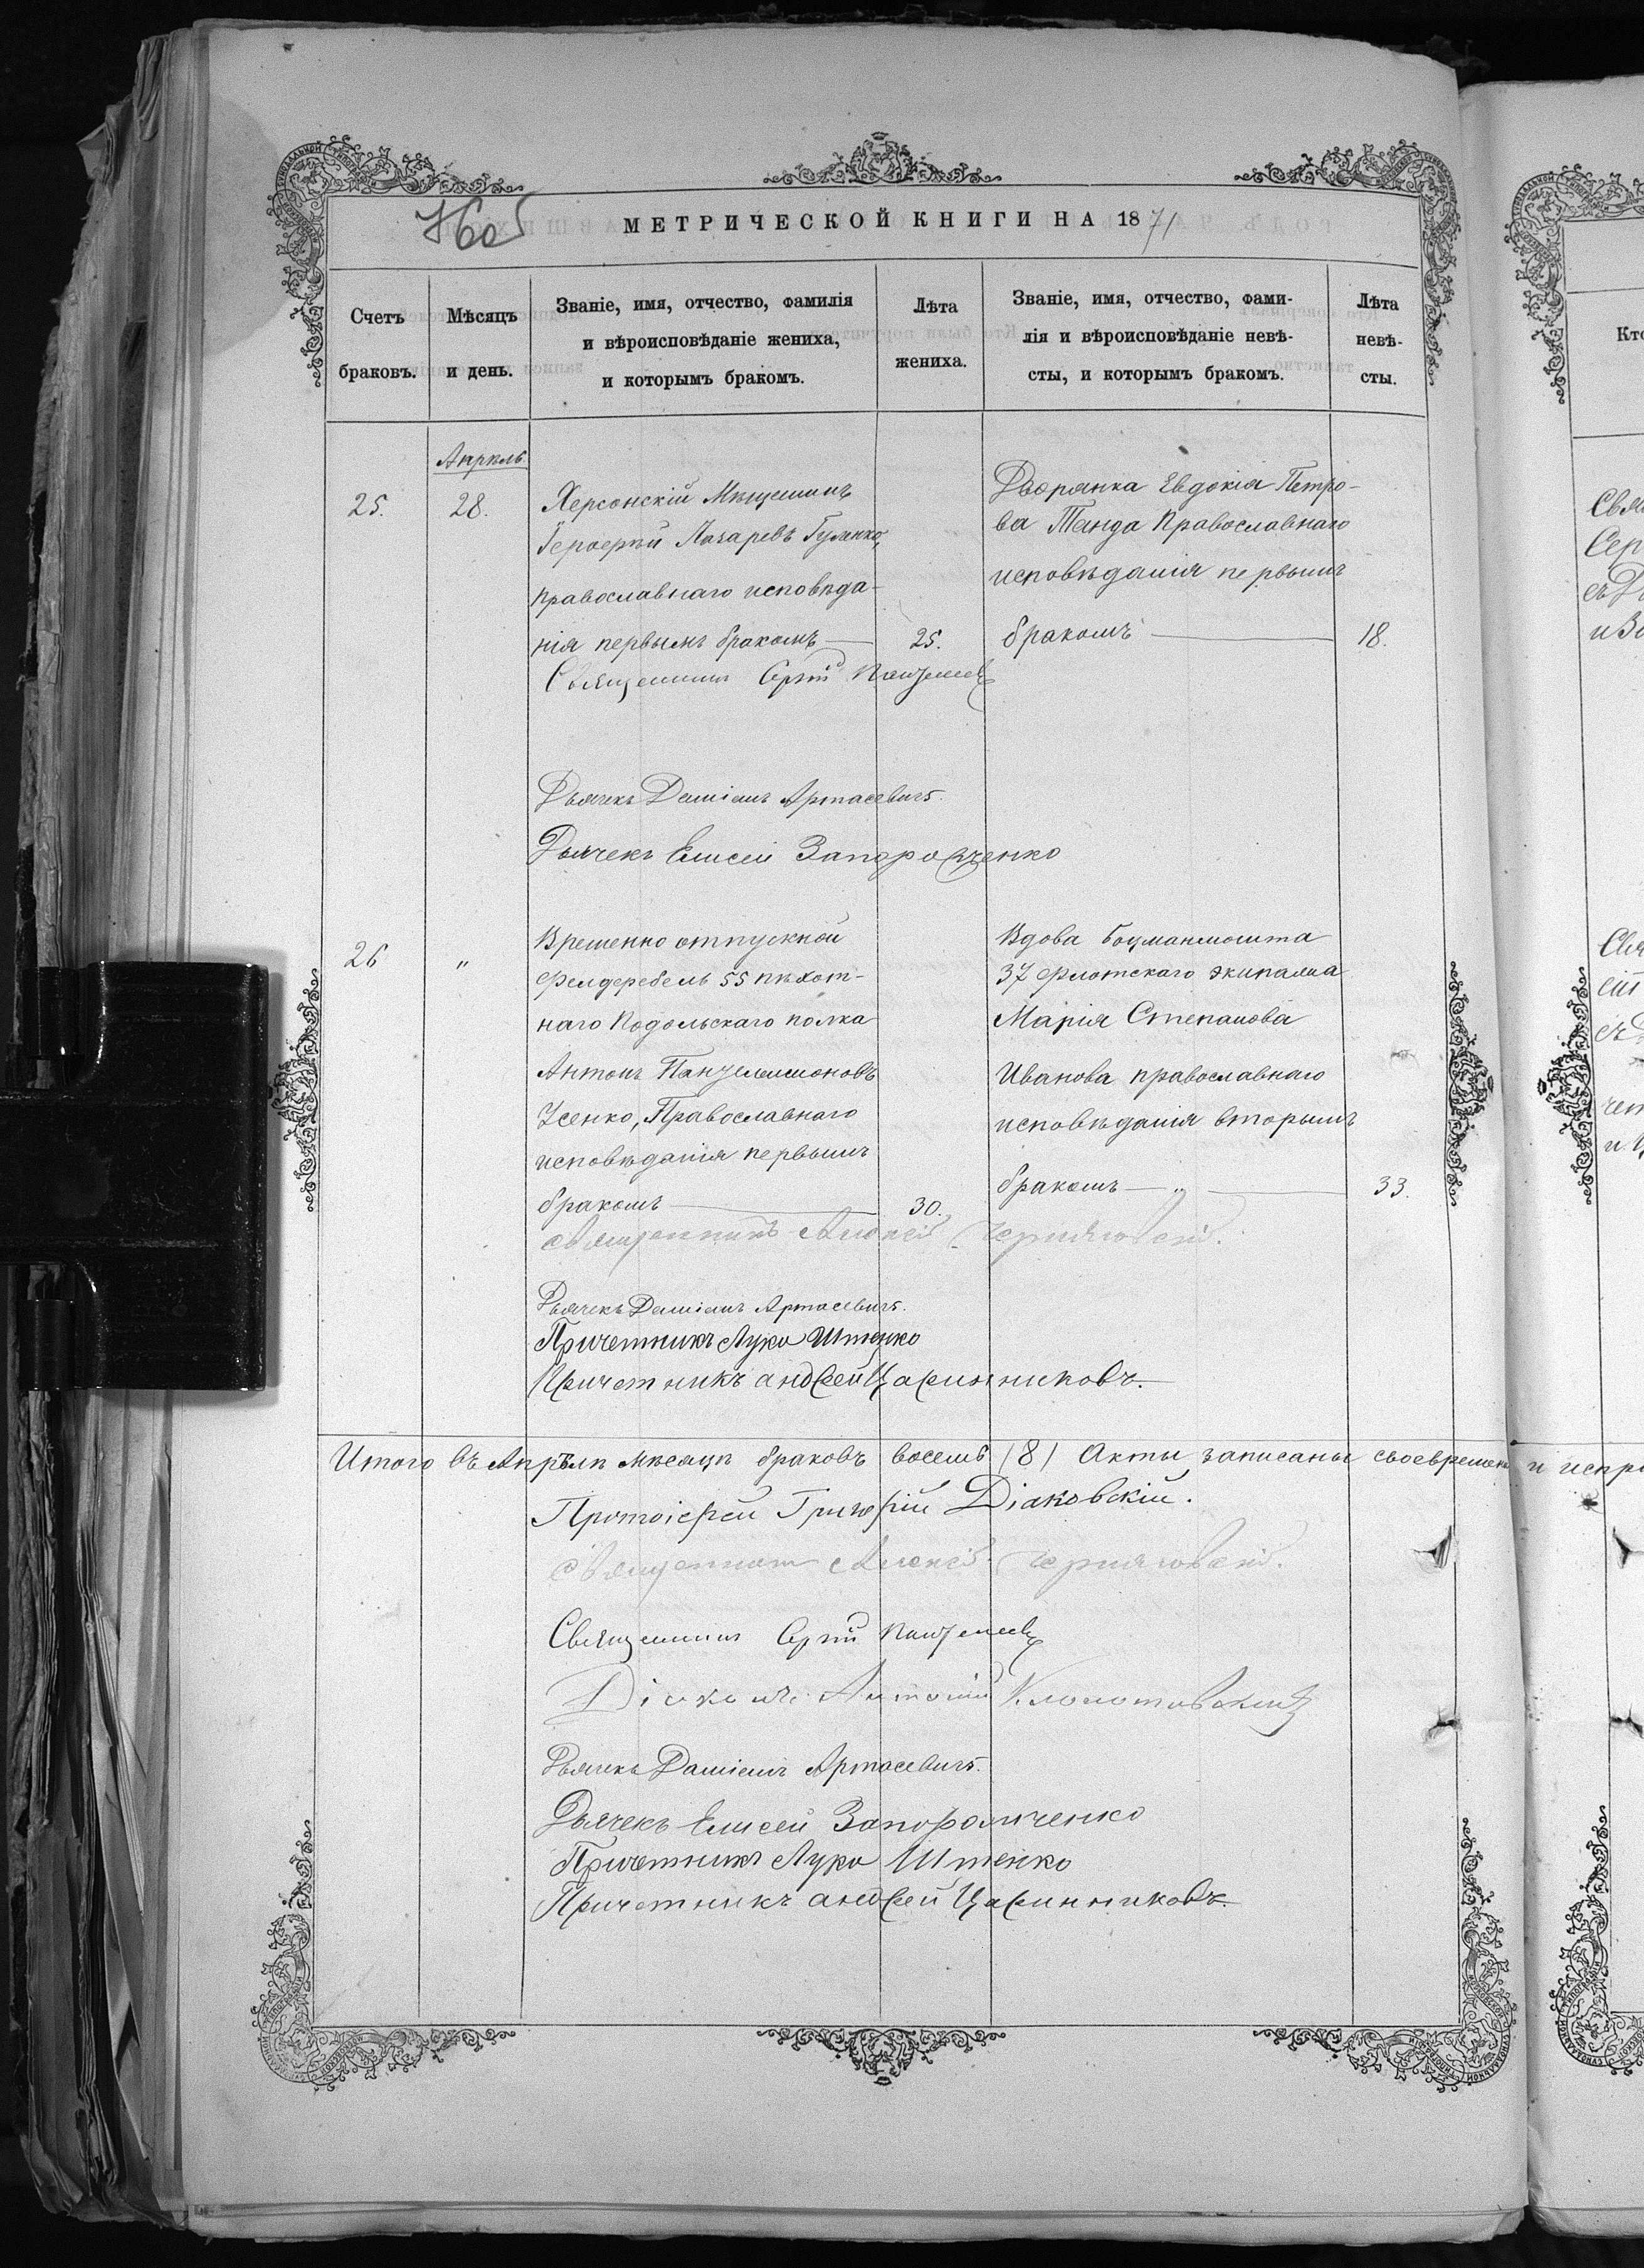 МЕТРИЧЕСКОЙ КНИГИ НА 1871
Счетъ браковъ.
Мѣсяцъ и день.
Званіе, имя, отчество, фамилія
и вѣроисповѣданіе жениха,
и которымъ бракомъ.
Лѣта жениха.
Званіе, имя, отчество, фами-
лія и вѣроисповѣданіе невѣ-
сты, и которымъ бракомъ.
Лѣта невѣ-
сты.
Апрѣль
25.
28.
Херсонскій Мѣщанинъ
Лазаревъ Гуленко,
православнаго исповѣда-
нія первымъ бракомъ — 25.
Дворянка Евдокія Петро-
ва Танда Православнаго
исповѣданія первымъ
бракомъ — 18.
Священникъ Сергій
Дьячекъ Даміанъ Артасевичъ.
Дьячекъ Елисей Запорожченко
26
"
Временно отпускной
фелдфебель 55 пѣхот-
наго Подольскаго полка
Антонъ Панзелимоновъ
Усенко, Православнаго
исповѣданія первымъ
бракомъ — 30.
Вдова Боцманмоита
37 флотскаго экипажа
Марія Степанова
Иванова православнаго
исповѣданія вторымъ
бракомъ — " — 33.
священникъ Алексѣй Черняховскій.
Дьячекъ Даміанъ Артасевичъ.
Причетникъ Лука Штенко
Причетникъ андрей Царинниковъ.
Итого въ Апрѣлѣ мѣсяцѣ браковъ восемь (8) Акты записаны своевременно и испра
Протоіерей Григорій Діаковскій.
священникъ Алексѣй Черняховскій.
Священникъ Сергій
Діаконъ Антоній
Дьячекъ Даміанъ Артасевичъ.
Дьячекъ Елисей Запорожченко
Причетникъ Лука Штенко
Причетникъ андрей Царинниковъ.